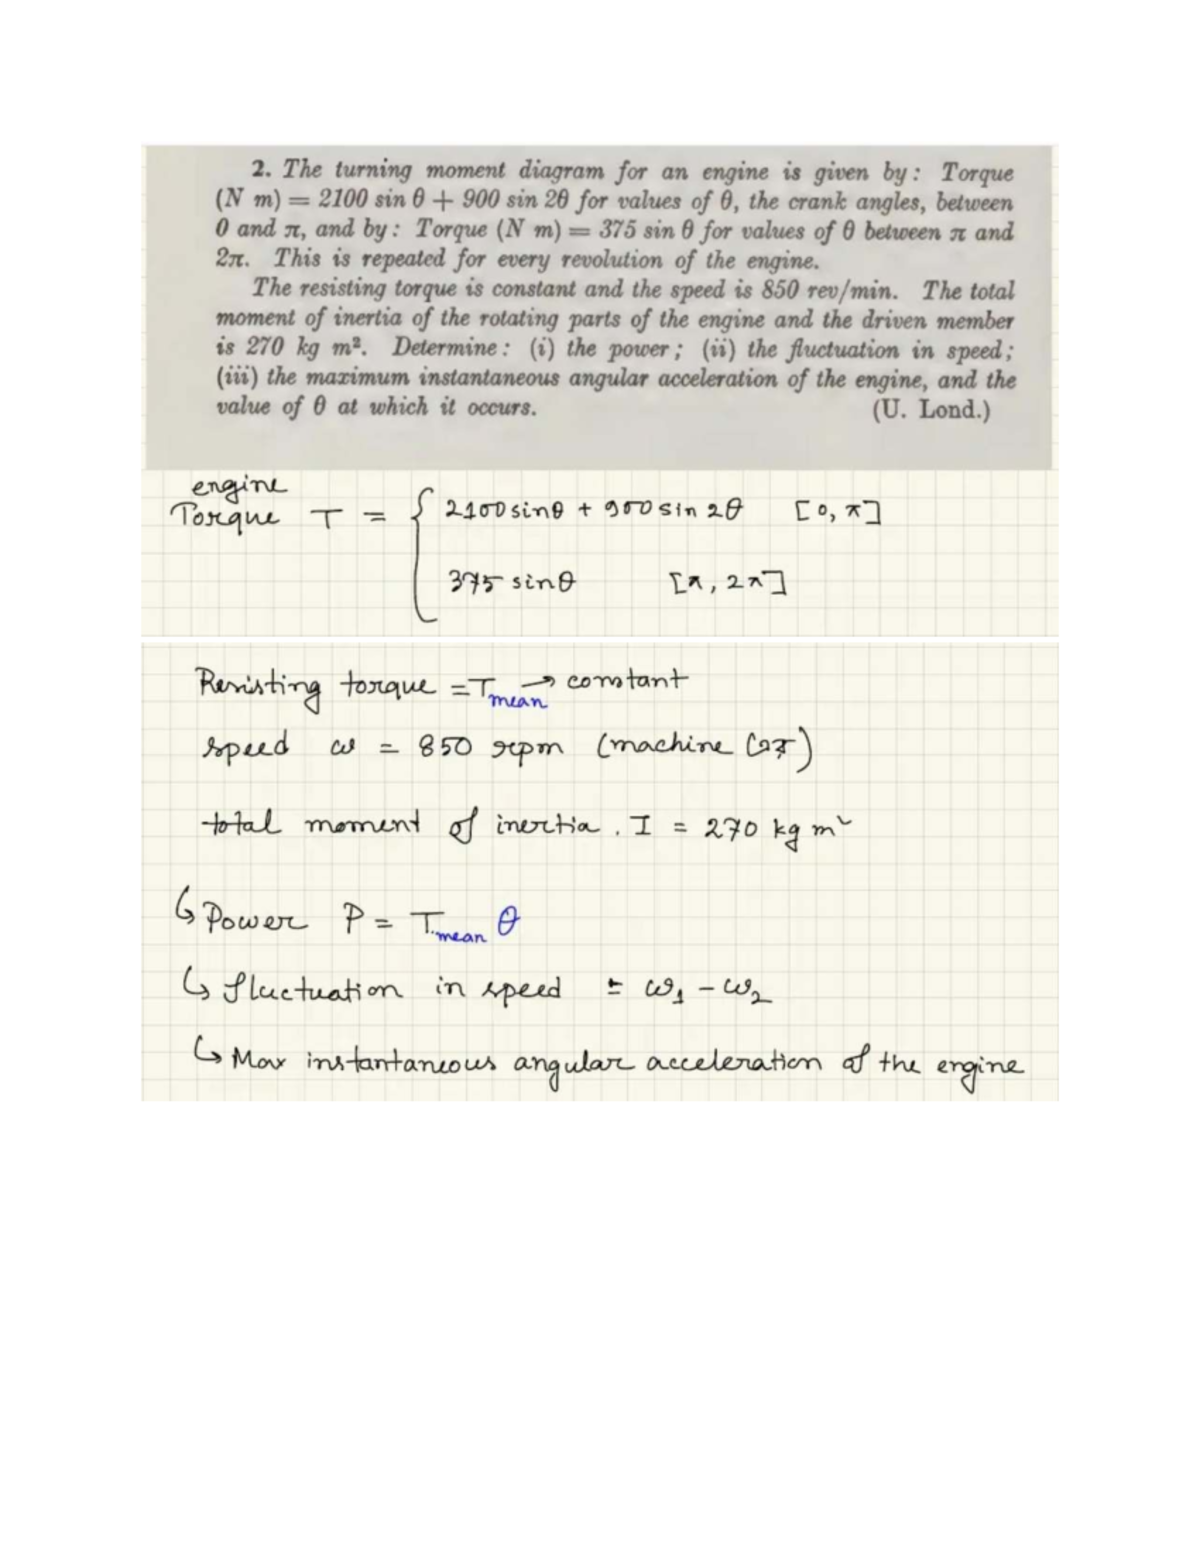 2. The turning moment diagram for an engine is given by: Torque
(N m) = 2100 sin θ + 900 sin 2θ for values of θ, the crank angles, between
0 and π, and by: Torque (N m) = 375 sin θ for values of θ between π and
2π. This is repeated for every revolution of the engine.
The resisting torque is constant and the speed is 850 rev/min. The total
moment of inertia of the rotating parts of the engine and the driven member
is 270 kg m². Determine: (i) the power; (ii) the fluctuation in speed;
(iii) the maximum instantaneous angular acceleration of the engine, and the
value of θ at which it occurs. (U. Lond.)
engine
Torque T = { 2100 sinθ + 900 sin 2θ [0, π]
375 sinθ [π, 2π]
Resisting torque = Tmean → constant
speed ω = 850 rpm (machine এর)
total moment of inertia, I = 270 kg m²
↳ Power P = Tmean θ
↳ fluctuation in speed = ω1 - ω2
↳ Max instantaneous angular acceleration of the engine